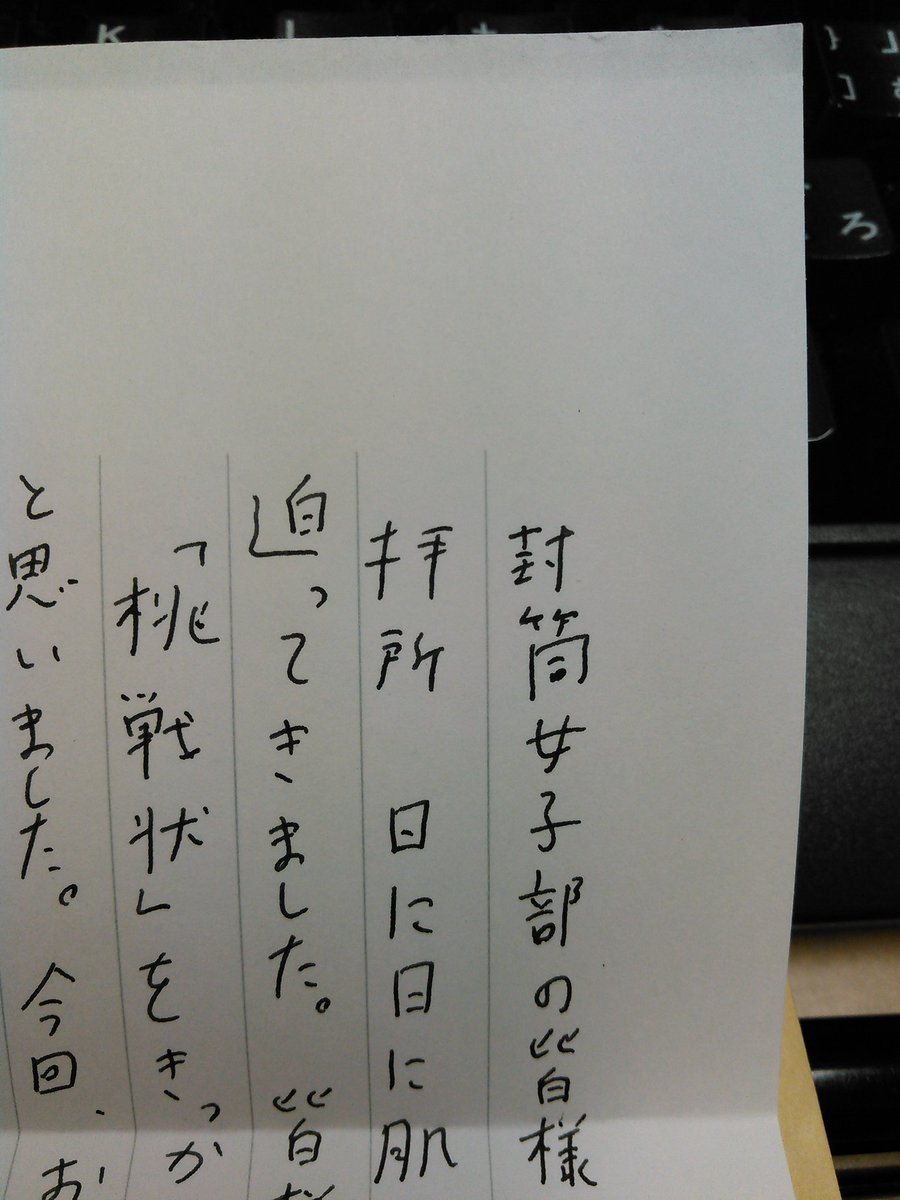 封筒女子部の皆様
拝所 日に日に肌
迫ってきました。皆
「桃戦状」をきっか
と思いました。今回、お
K
ろ